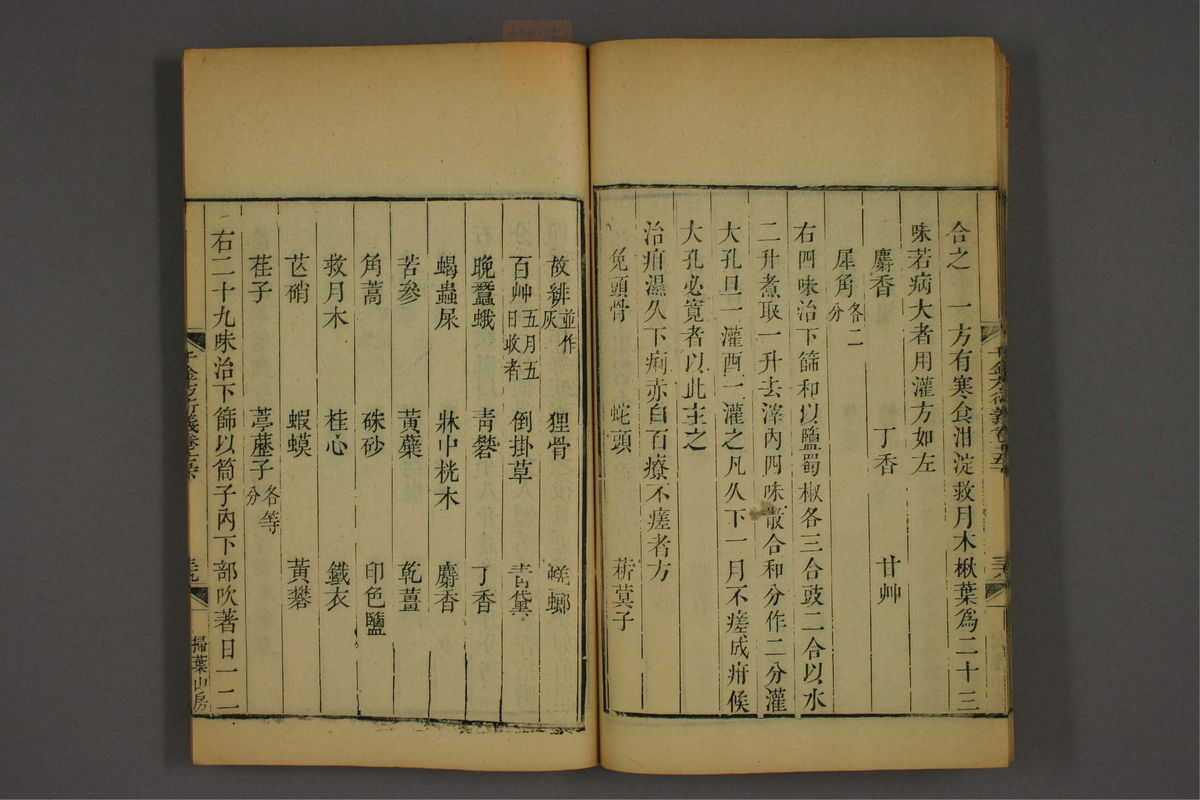 合之 一方有寒食泔淀救月木楸葉爲二十三
味若病大者用灌方如左
麝香 丁香 甘艸
犀角各二分
右四味治下篩和以鹽蜀椒各三合豉二合以水
二升煮取一升去滓內四味散合和分作二分灌
大孔旦一灌酉一灌之凡久下一月不瘥成疳候
大孔必寬者以此主之
治疳濕久下痢赤白百療不瘥者方
兔頭骨 蛇頭 菥蓂子
故緋並作灰 狸骨 蜣螂
百艸五月五日收者 倒掛草 青黛
晚蠶蛾 青礬 丁香
蝎蟲屎 牀中桄木 麝香
苦參 黃蘗 乾薑
角蒿 硃砂 印色鹽
救月木 桂心 鐵衣
芒硝 蝦蟆 黃礬
荏子 葶藶子各等分
右二十九味治下篩以筒子內下部吹著日一二
千金方衍義卷
掃葉山房